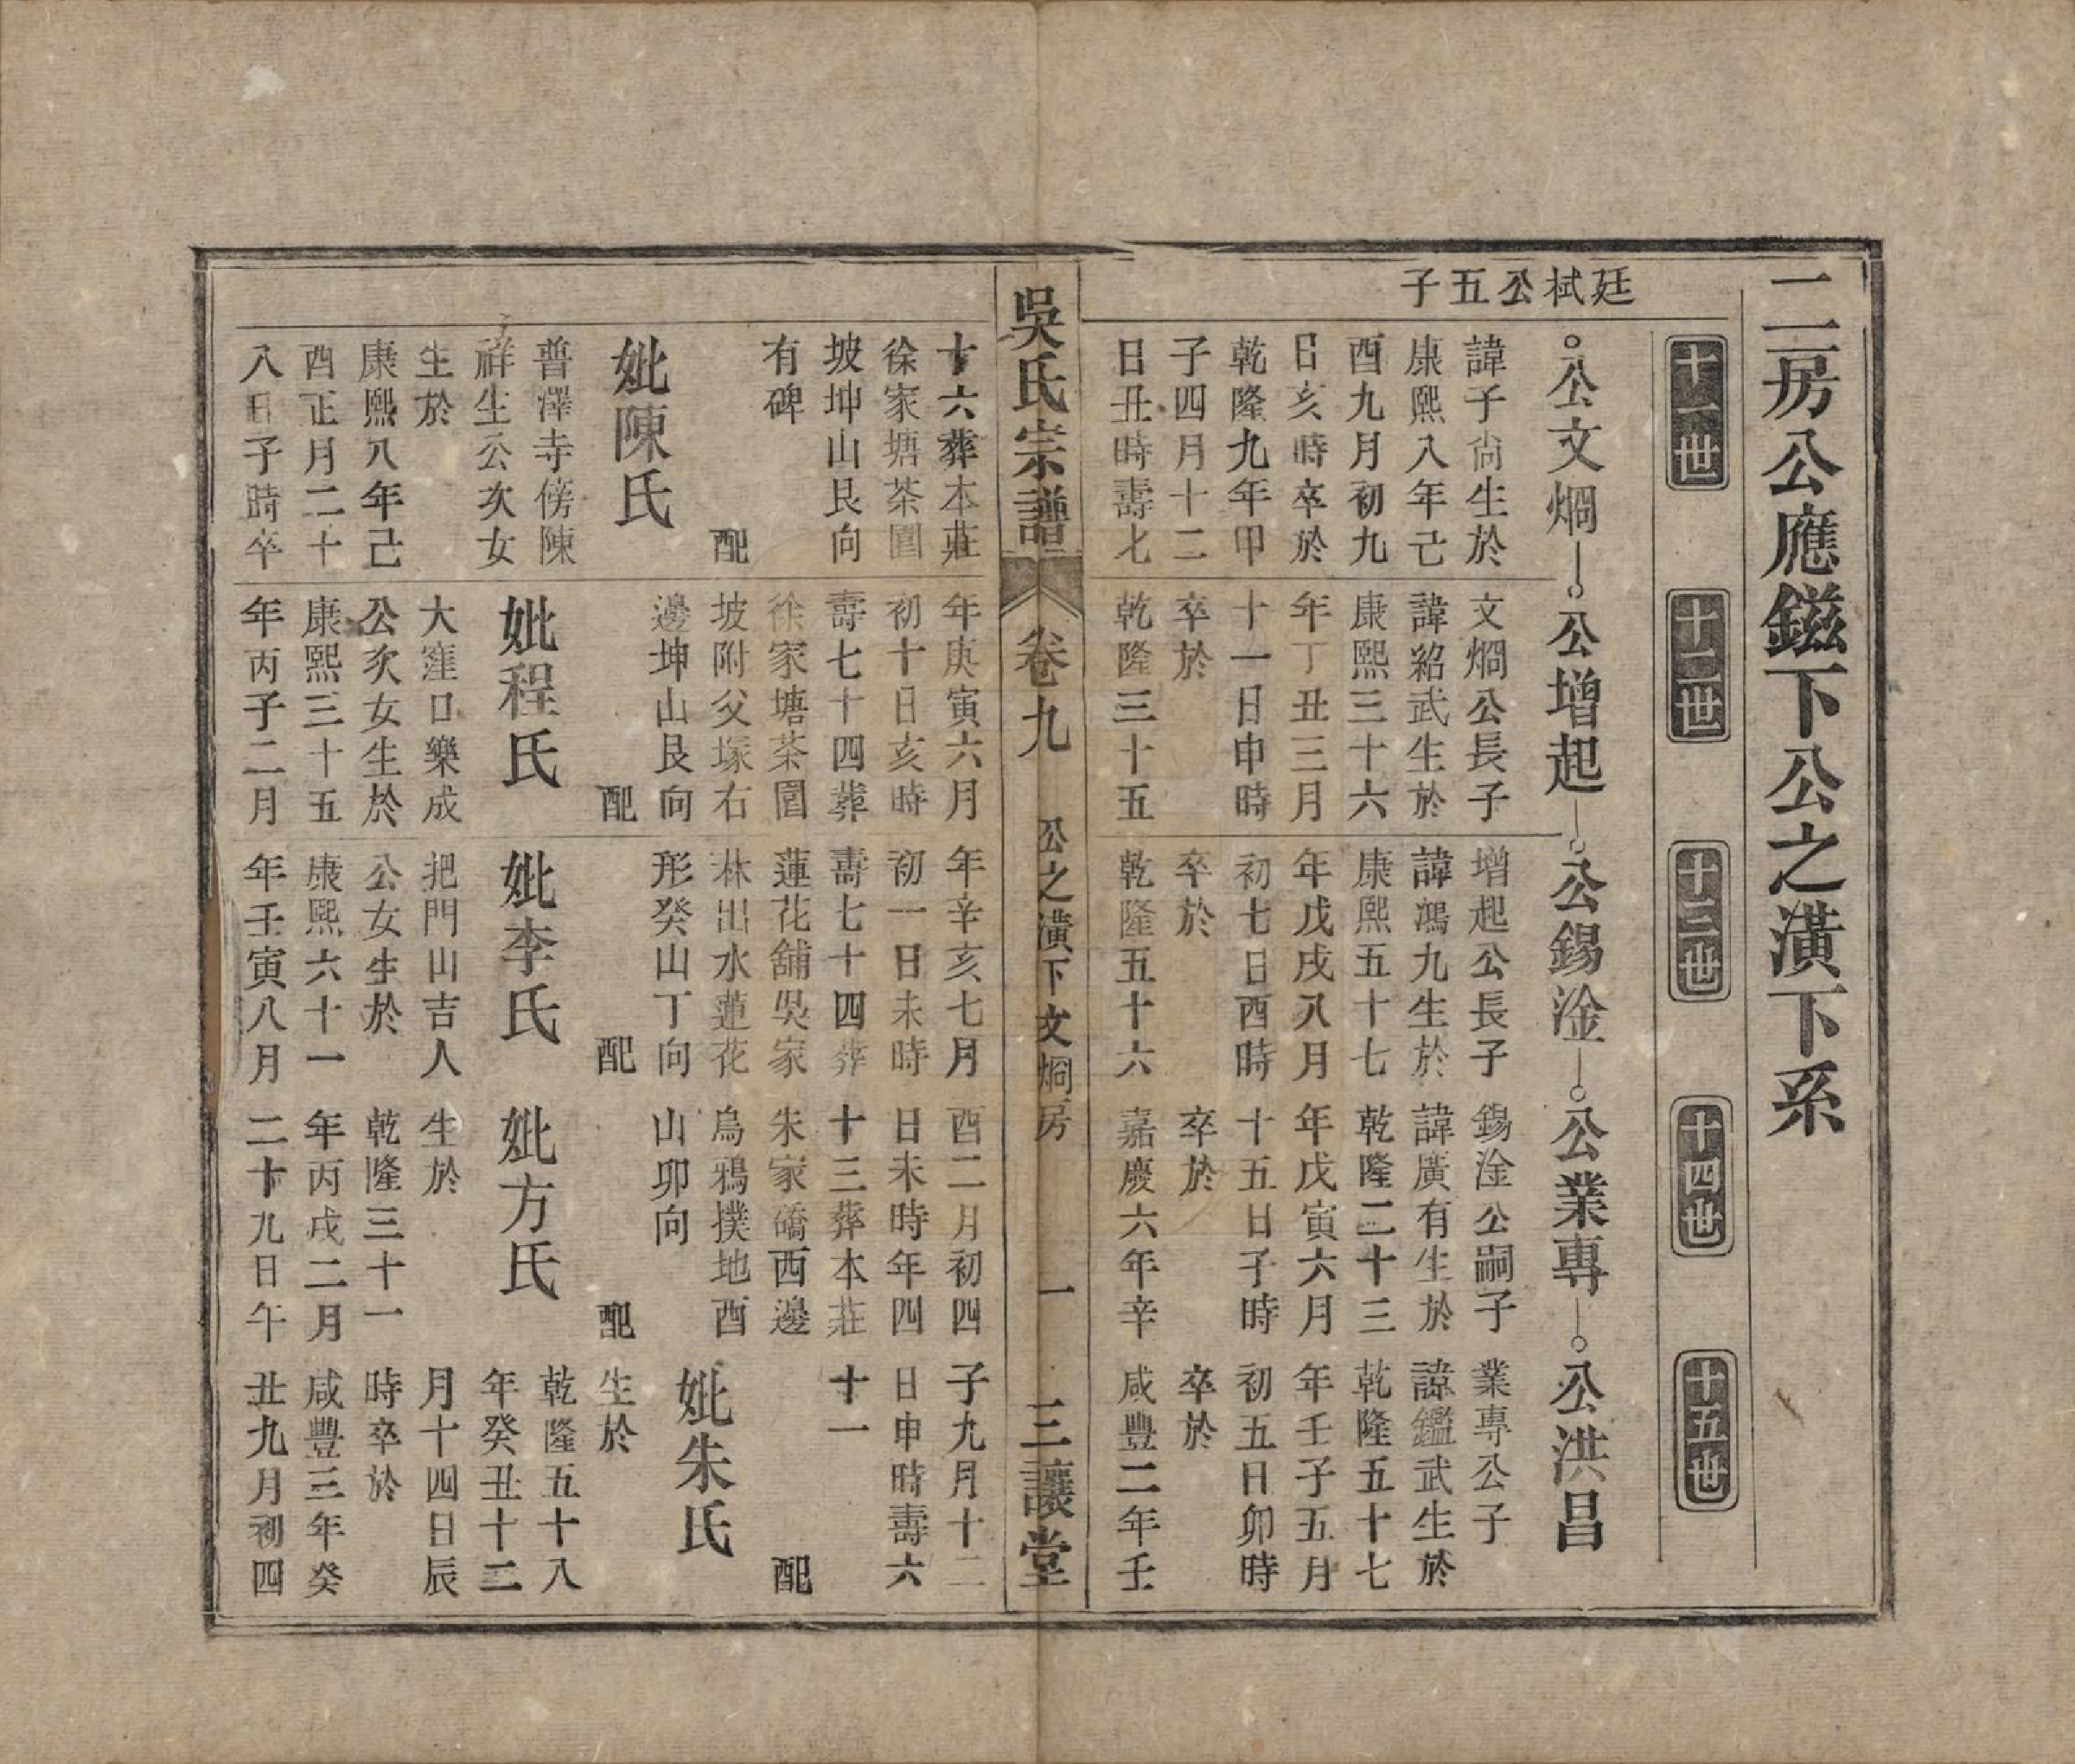 二房公應鎡下公之潢下系
十一世
十二世
十三世
十四世
十五世
廷栻公五子
公文焵
諱子尙生於
康熙八年己
酉九月初九
日亥時卒於
乾隆九年甲
子四月十二
日丑時壽七
十六葬本莊
徐家塘茶園
坡坤山艮向
有碑
配
妣陳氏
普澤寺傍陳
祥生公次女
生於
康熙八年己
酉正月二十
八日子時卒
公增起
文焵公長子
諱紹武生於
康熙三十六
年丁丑三月
十一日申時
卒於
乾隆三十五
年庚寅六月
初十日亥時
壽七十四葬
徐家塘茶園
坡附父塚右
邊坤山艮向
配
妣程氏
大窪口樂成
公次女生於
康熙三十五
年丙子二月
公錫淦
增起公長子
諱鴻九生於
康熙五十七
年戊戌八月
初七日酉時
卒於
乾隆五十六
年辛亥七月
初一日未時
壽七十四葬
蓮花舖吳家
林出水蓮花
形癸山丁向
配
妣李氏
把門山吉人
公女生於
康熙六十一
年壬寅八月
公業專
錫淦公嗣子
諱廣有生於
乾隆二十三
年戊寅六月
十五日子時
卒於
嘉慶六年辛
酉二月初四
日未時年四
十三葬本莊
朱家礄西邊
烏鴉撲地酉
山卯向
配
妣方氏
生於
乾隆三十一
年丙戌二月
二十九日午
公洪昌
業專公子
諱鑑武生於
乾隆五十七
年壬子五月
初五日卯時
卒於
咸豐二年壬
子九月十二
日申時壽六
十一
配
妣朱氏
生於
乾隆五十八
年癸丑十二
月十四日辰
時卒於
咸豐三年癸
丑九月初四
吳氏宗譜
卷九
公之潢下文焵房
一
三讓堂